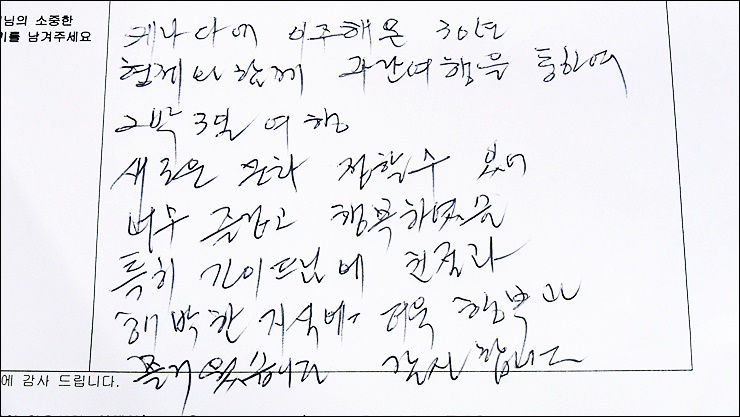 님의 소중한
기를 남겨주세요
케나다에 이주해온 30년
형제와 함께 관광여행을 통하여
2박 3일 여행
새로운 문화 접할수 있어
너무 즐겁고 행복하였슴
특히 가이드님에 친절과
해박한 지식에 더욱 행복
즐거웠습니다 감사합니다
에 감사 드립니다.